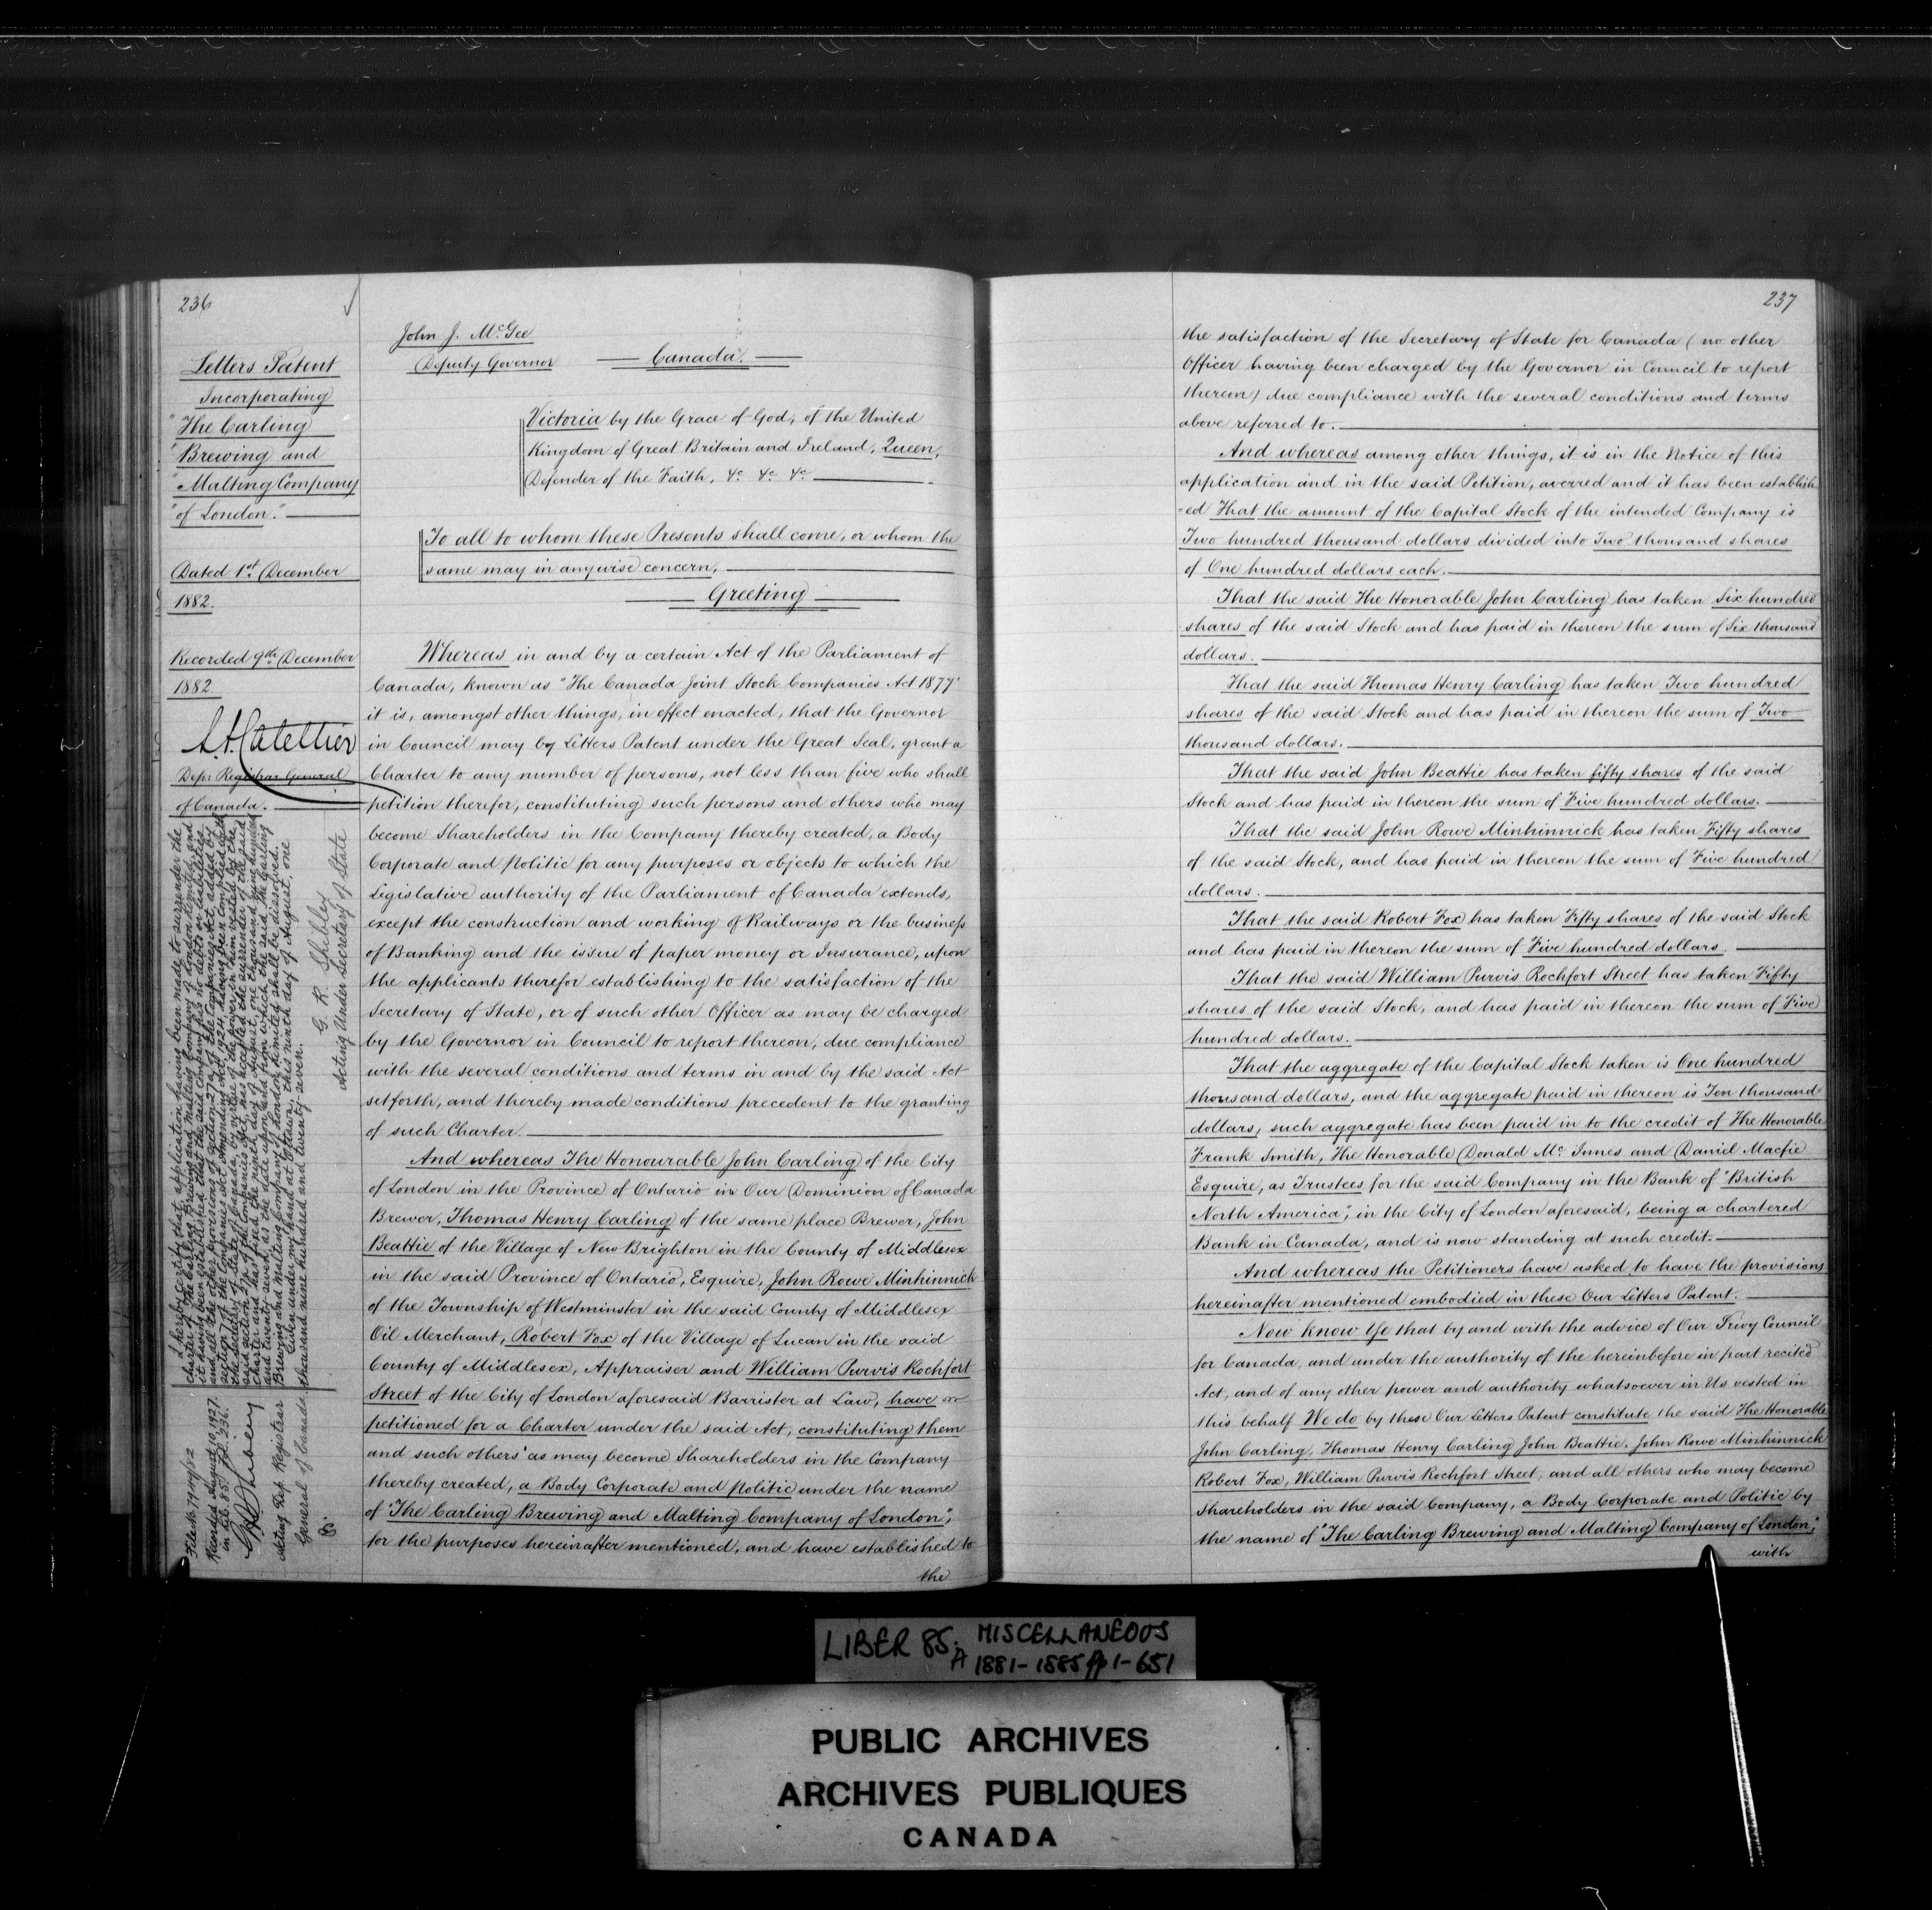 236
Letters Patent
Incorporating
"The Carling
"Brewing and
"Malting Company
"of London."
Dated 1st December
1882.
Recorded 9th December
1882
Dep: Registrar General
of Canada.
I hereby certify that, application having been made to surrender the
charter of The Carling Brewing and Malting Company of London Limited, and
it having been established that the said Company has no debts or liabilities
and all the other provisions of section 27B of the Companies Act, added by
section 7 of the Companies Act Amending Act, 1924, having been complied with
the Secretary of State of Canada, by virtue of the power in him vested by the
said section 27B of the Companies Act, has accepted the surrender of the said
charter and has fixed the ninth day of August, one thousand nine hundred
and twenty-seven, as the date upon and from which the said The Carling
Brewing and Malting Company of London, Limited shall be dissolved.
Given under my hand at Ottawa, this ninth day of August, one
thousand nine hundred and twenty-seven.
G. R. Shibley
Acting Under Secretary of State
Recorded August 10 1927.
in Lib. 85, Fol. 236.
Acting Dep. Registrar
General of Canada.
John J. McGee
Deputy Governor
Canada.
Victoria by the Grace of God, of the United
Kingdom of Great Britain and Ireland, Queen,
Defender of the Faith, &c &c &c
To all to whom these Presents shall come, or whom the
same may in anywise concern,
Greeting
Whereas in and by a certain Act of the Parliament of
Canada, known as "The Canada Joint Stock Companies Act 1877"
it is, amongst other things, in effect enacted, that the Governor
in Council may by Letters Patent under the Great Seal, grant a
Charter to any number of persons, not less than five who shall
petition therefor, constituting such persons and others who may
become Shareholders in the Company thereby created, a Body
Corporate and Politic for any purposes or objects to which the
Legislative authority of the Parliament of Canada extends,
except the construction and working of Railways or the business
of Banking and the issue of paper money or Insurance, upon
the applicants therefor establishing to the satisfaction of the
Secretary of State, or of such other Officer as may be charged
by the Governor in Council to report thereon, due compliance
with the several conditions and terms in and by the said Act
setforth, and thereby made conditions precedent to the granting
of such Charter.
And whereas The Honourable John Carling of the City
of London in the Province of Ontario in Our Dominion of Canada
Brewer, Thomas Henry Carling of the same place Brewer, John
Beattie of the Village of New Brighton in the County of Middlesex
in the said Province of Ontario, Esquire, John Rowe Minhinnick
of the Township of Westminster in the said County of Middlesex
Oil Merchant, Robert Fox of the Village of Lucan in the said
County of Middlesex, Appraiser and William Purvis Rochfort
Street of the City of London aforesaid Barrister at Law, have
petitioned for a Charter under the said Act, constituting them
and such others as may become Shareholders in the Company
thereby created, a Body Corporate and Politic under the name
of "The Carling Brewing and Malting Company of London",
for the purposes hereinafter mentioned, and have established to
the
237
the satisfaction of the Secretary of State for Canada (no other
Officer having been charged by the Governor in Council to report
thereon) due compliance with the several conditions and terms
above referred to.
And whereas among other things, it is in the Notice of this
application and in the said Petition, averred and it has been establish
=ed That the amount of the Capital Stock of the intended Company is
Two hundred thousand dollars divided into Two thousand shares
of One hundred dollars each.
That the said The Honorable John Carling has taken Six hundred
shares of the said Stock and has paid in thereon the sum of Six thousand
dollars.
That the said Thomas Henry Carling has taken Two hundred
shares of the said Stock and has paid in thereon the sum of Two
thousand dollars.
That the said John Beattie has taken fifty shares of the said
Stock and has paid in thereon the sum of Five hundred dollars.
That the said John Rowe Minhinnick has taken Fifty shares
of the said Stock, and has paid in thereon the sum of Five hundred
dollars.
That the said Robert Fox has taken Fifty shares of the said Stock
and has paid in thereon the sum of Five hundred dollars.
That the said William Purvis Rochfort Street has taken Fifty
shares of the said Stock, and has paid in thereon the sum of Five
hundred dollars.
That the aggregate of the Capital Stock taken is One hundred
thousand dollars, and the aggregate paid in thereon is Ten thousand
dollars, such aggregate has been paid in to the credit of The Honorable
Frank Smith, The Honorable Donald McInnes and Daniel Macfie
Esquire, as Trustees for the said Company in the Bank of "British
North America", in the City of London aforesaid, being a chartered
Bank in Canada, and is now standing at such credit.
And whereas the Petitioners have asked to have the provisions
hereinafter mentioned embodied in these Our Letters Patent.
Now know Ye that by and with the advice of Our Privy Council
for Canada, and under the authority of the hereinbefore in part recited
Act, and of any other power and authority whatsoever in Us vested in
this behalf We do by these Our Letters Patent constitute the said The Honorable
John Carling, Thomas Henry Carling John Beattie, John Rowe Minhinnick
Robert Fox, William Purvis Rochfort Street, and all others who may become
shareholders in the said Company, a Body Corporate and Politic by
the name of "The Carling Brewing and Malting Company of London",
with
LIBER 85. MISCELLANEOUS
A 1881-1885 pp 1-651
PUBLIC ARCHIVES
ARCHIVES PUBLIQUES
CANADA